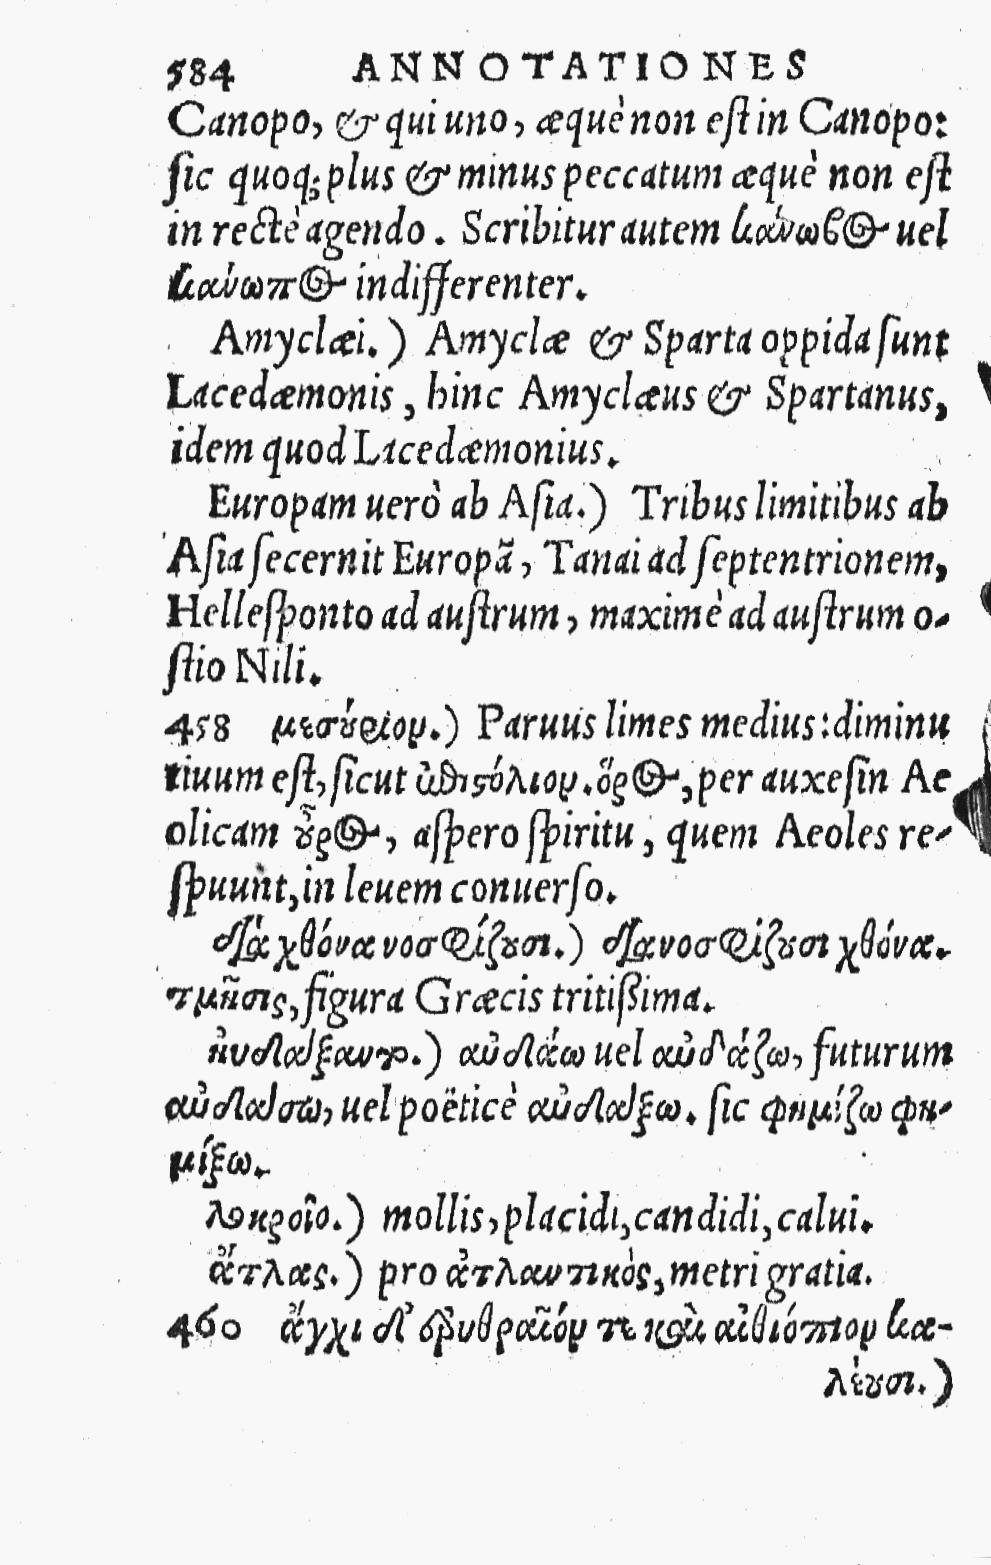 584 ANNOTATIONES
Canopo, & qui uno, æquè non eſt in Canopo:
ſic quoq; plus & minus peccatum æquè non eſt
in rectè agendo. Scribitur autem κάνωβος uel
κάνωπος indifferenter.
Amyclæi.) Amyclæ & Sparta oppida ſunt
Lacedæmonis, hinc Amyclæus & Spartanus,
idem quod Lacedæmonius.
Europam uerò ab Aſia.) Tribus limitibus ab
Aſia ſecernit Europã, Tanai ad ſeptentrionem,
Helleſponto ad auſtrum, maximè ad auſtrum o-
ſtio Nili.
458 μεσούριον.) Paruus limes medius: diminu
tiuum eſt, ſicut ὠθιπόλιον. ὅρος, per auxeſin Ae
olicam οὖρος, aſpero ſpiritu, quem Aeoles re-
ſpuunt, in leuem conuerſo.
διὰ χθόνα νοσφίζουσι.) διανοσφίζουσι χθόνα.
τμῆσις, figura Græcis tritißima.
ηὐδάξαντο.) αὐδάω uel αὐδάζω, futurum
αὐδάσω, uel poëticè αὐδάξω. ſic φημίζω φη-
μίξω.
λευκροῖο.) mollis, placidi, candidi, calui.
ἄτλας.) pro ἀτλαντικὸς, metri gratia.
460 ἄγχι δ' ἐρυθραῖόν τε καὶ αἰθιόπιον κα-
λέουσι.)